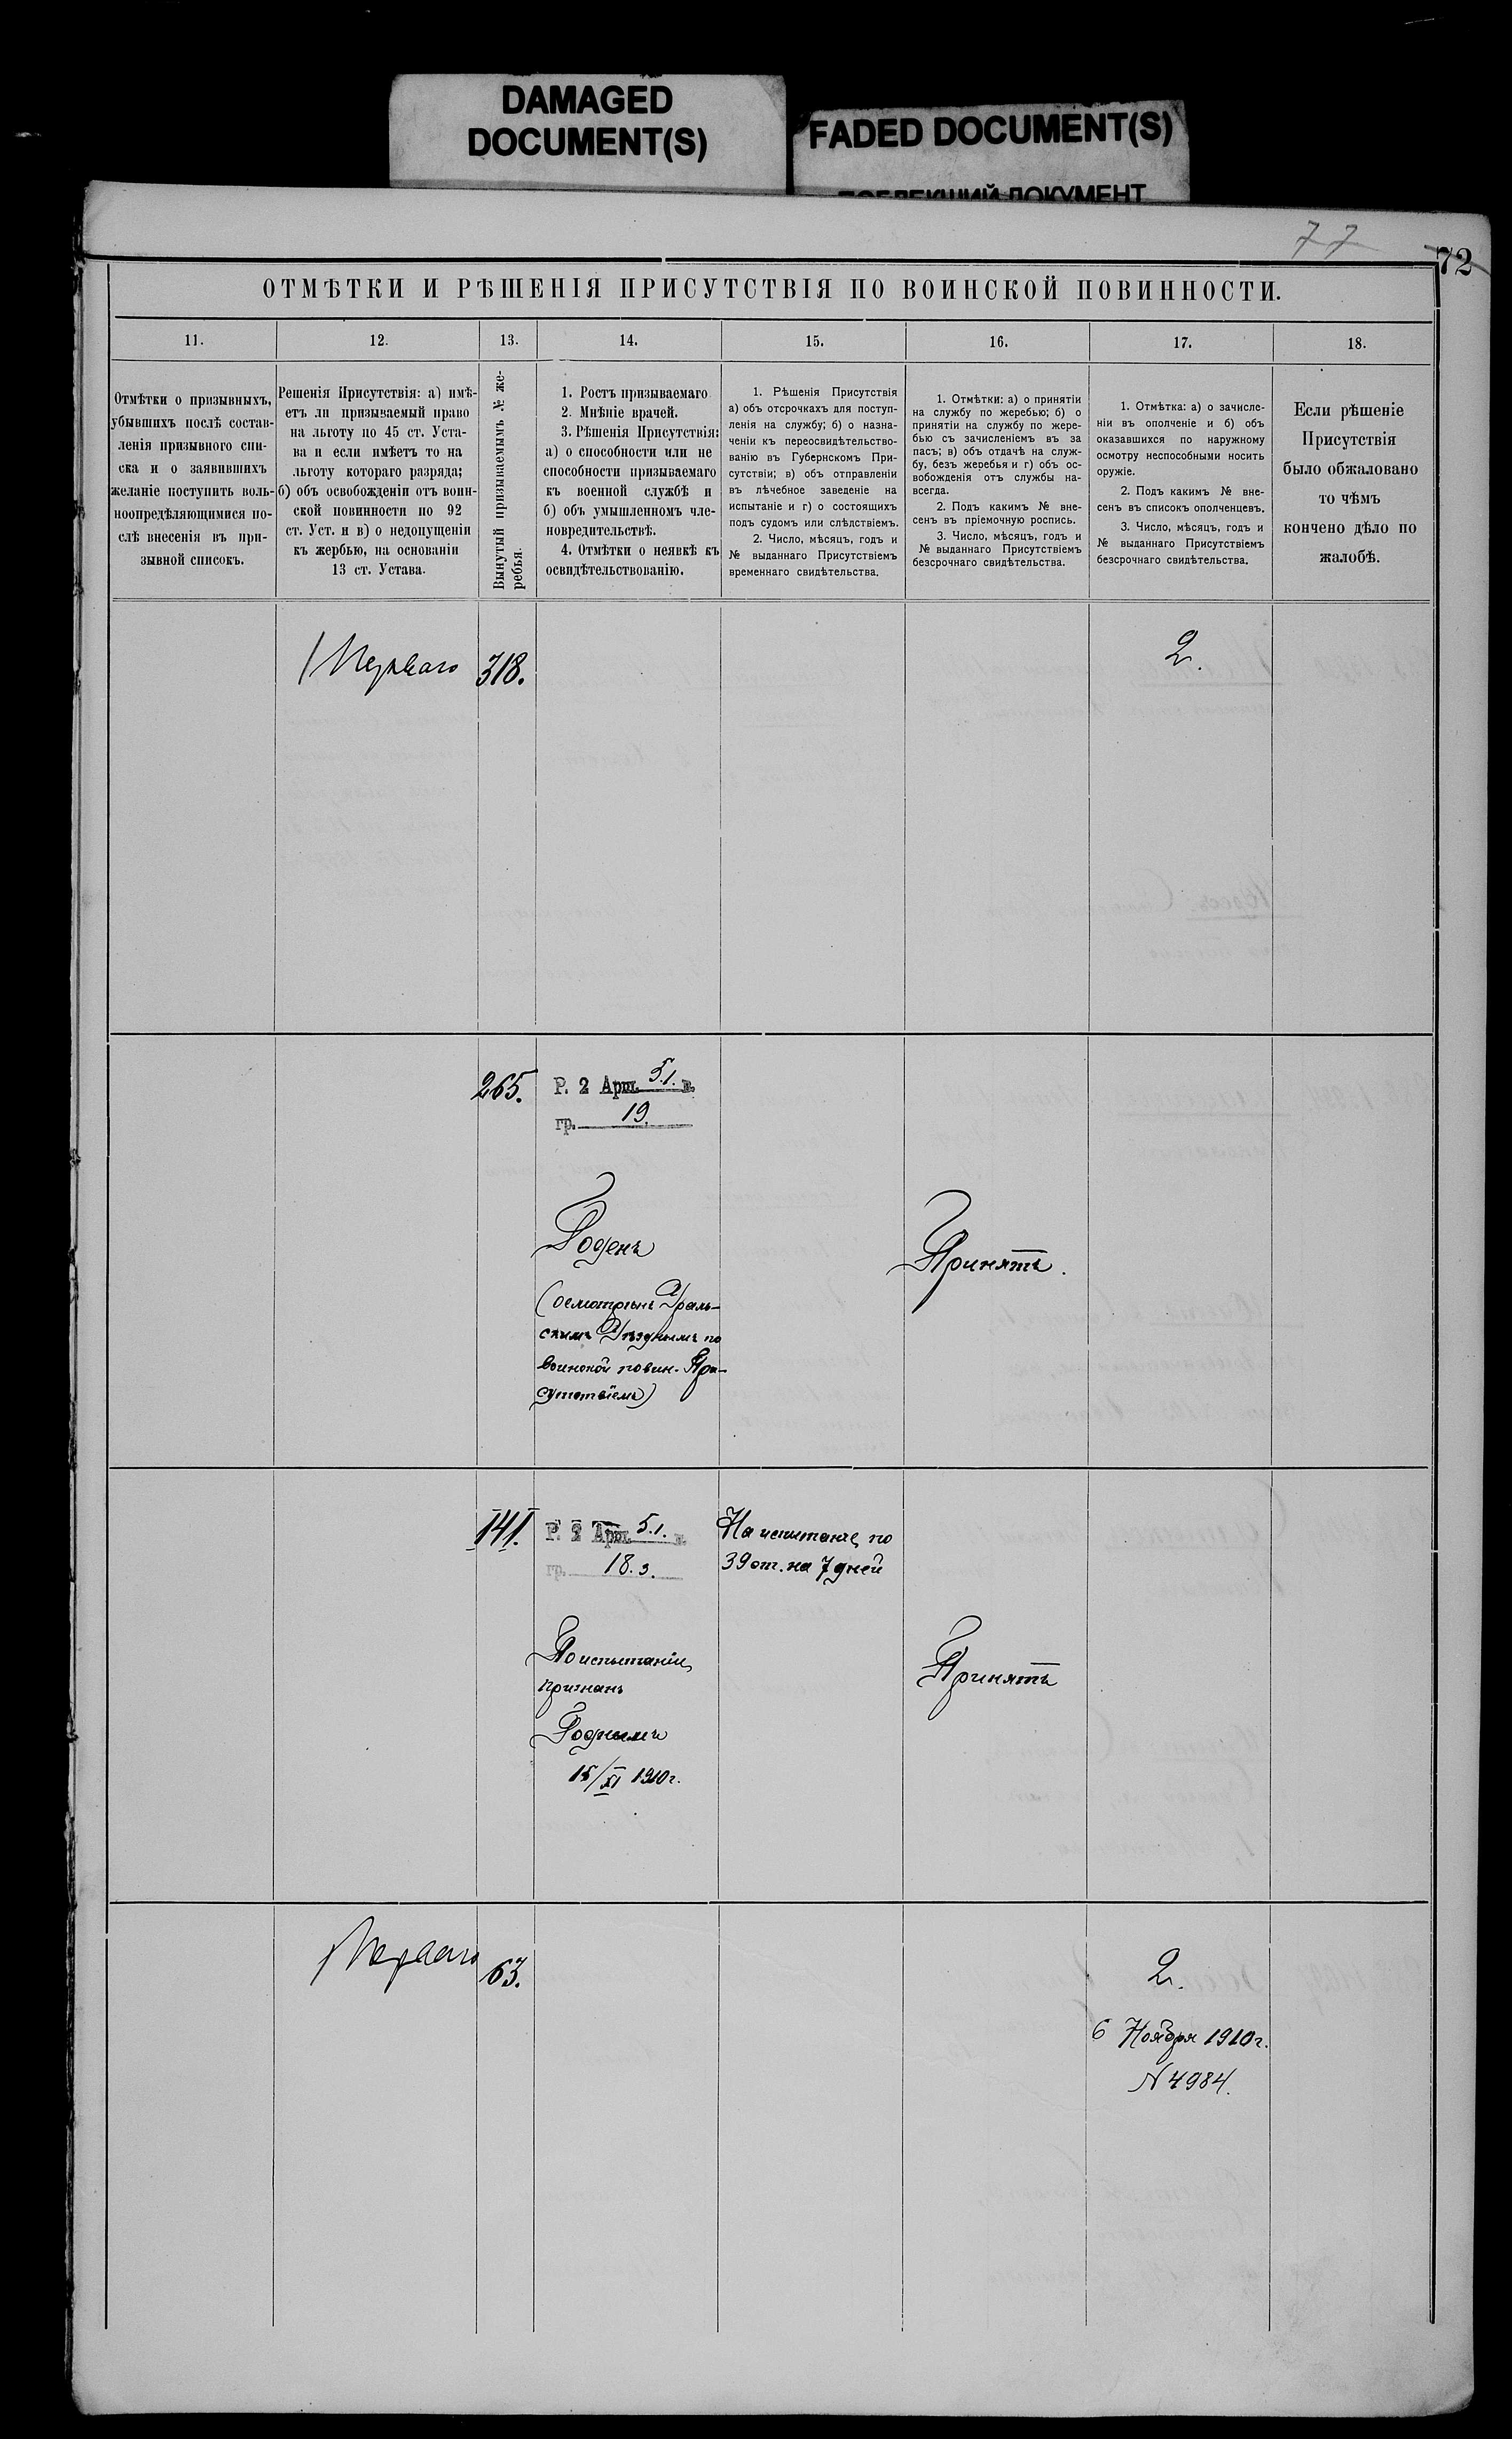 DAMAGED
DOCUMENT(S)
FADED DOCUMENT(S)
ПОБЛЕКШИЙ ДОКУМЕНТ
77
72
ОТМѢТКИ И РѢШЕНІЯ ПРИСУТСТВІЯ ПО ВОИНСКОЙ ПОВИННОСТИ.
11.
12.
13.
14.
15.
16.
17.
18.
Отмѣтки о призывныхъ,
убывшихъ послѣ состав-
ленія призывного спи-
ска и о заявившихъ
желаніе поступить воль-
ноопредѣляющимися по-
слѣ внесенія въ при-
зывной списокъ.
Решенія Присутствія: а) имѣ-
етъ ли призываемый право
на льготу по 45 ст. Уста-
ва и если имѣетъ то на
льготу котораго разряда;
б) объ освобожденіи отъ воин-
ской повинности по 92
ст. Уст. и в) о недопущеніи
къ жербью, на основаніи
13 ст. Устава.
Вынутый призываемымъ № же-
ребья.
1. Ростъ призываемаго
2. Мнѣніе врачей.
3. Рѣшенія Присутствія:
а) о способности или не
способности призываемаго
къ военной службѣ и
б) объ умышленномъ чле-
новредительствѣ.
4. Отмѣтки о неявкѣ къ
освидѣтельствованію.
1. Рѣшенія Присутствія
а) объ отсрочкахъ для поступ-
ленія на службу; б) о назна-
ченіи къ переосвидѣтельство-
ванію въ Губернскомъ При-
сутствіи; в) объ отправленіи
въ лѣчебное заведеніе на
испытаніе и г) о состоящихъ
подъ судомъ или слѣдствіемъ.
2. Число, мѣсяцъ, годъ и
№ выданнаго Присутствіемъ
временнаго свидѣтельства.
1. Отмѣтки: а) о принятіи
на службу по жеребью; б) о
принятіи на службу по жере-
бью съ зачисленіемъ въ за
пасъ; в) объ отдачѣ на служ-
бу, безъ жеребья и г) объ ос-
вобожденія отъ службы на-
всегда.
2. Подъ какимъ № вне-
сенъ въ пріемочную роспись.
3. Число, мѣсяцъ, годъ и
№ выданнаго Присутствіемъ
безсрочнаго свидѣтельства.
1. Отмѣтка: а) о зачисле-
ніи въ ополченіе и б) объ
оказавшихся по наружному
осмотру неспособными носить
оружіе.
2. Подъ какимъ № вне-
сенъ въ списокъ ополченцевъ.
3. Число, мѣсяцъ, годъ и
№ выданнаго Присутствіемъ
безсрочнаго свидѣтельства.
Если рѣшеніе
Присутствія
было обжаловано
то чѣмъ
кончено дѣло по
жалобѣ.
Перваго
318.
2.
265.
Р. 2 Арш. 5.1. в.
гр. 19.
Годенъ
(осмотрѣнъ Ураль-
скимъ Уѣзднымъ по
воинской повин. При-
сутствіемъ)
Принятъ.
141.
Р. 2 Арш. 5.1. в.
гр. 18.3.
На испытаніе по
39 ст. на 7 дней
По испытаніи
признанъ
Годнымъ
15/XI 1910 г.
Принятъ
Перваго
63.
2.
6 Ноября 1910 г.
N 4984.